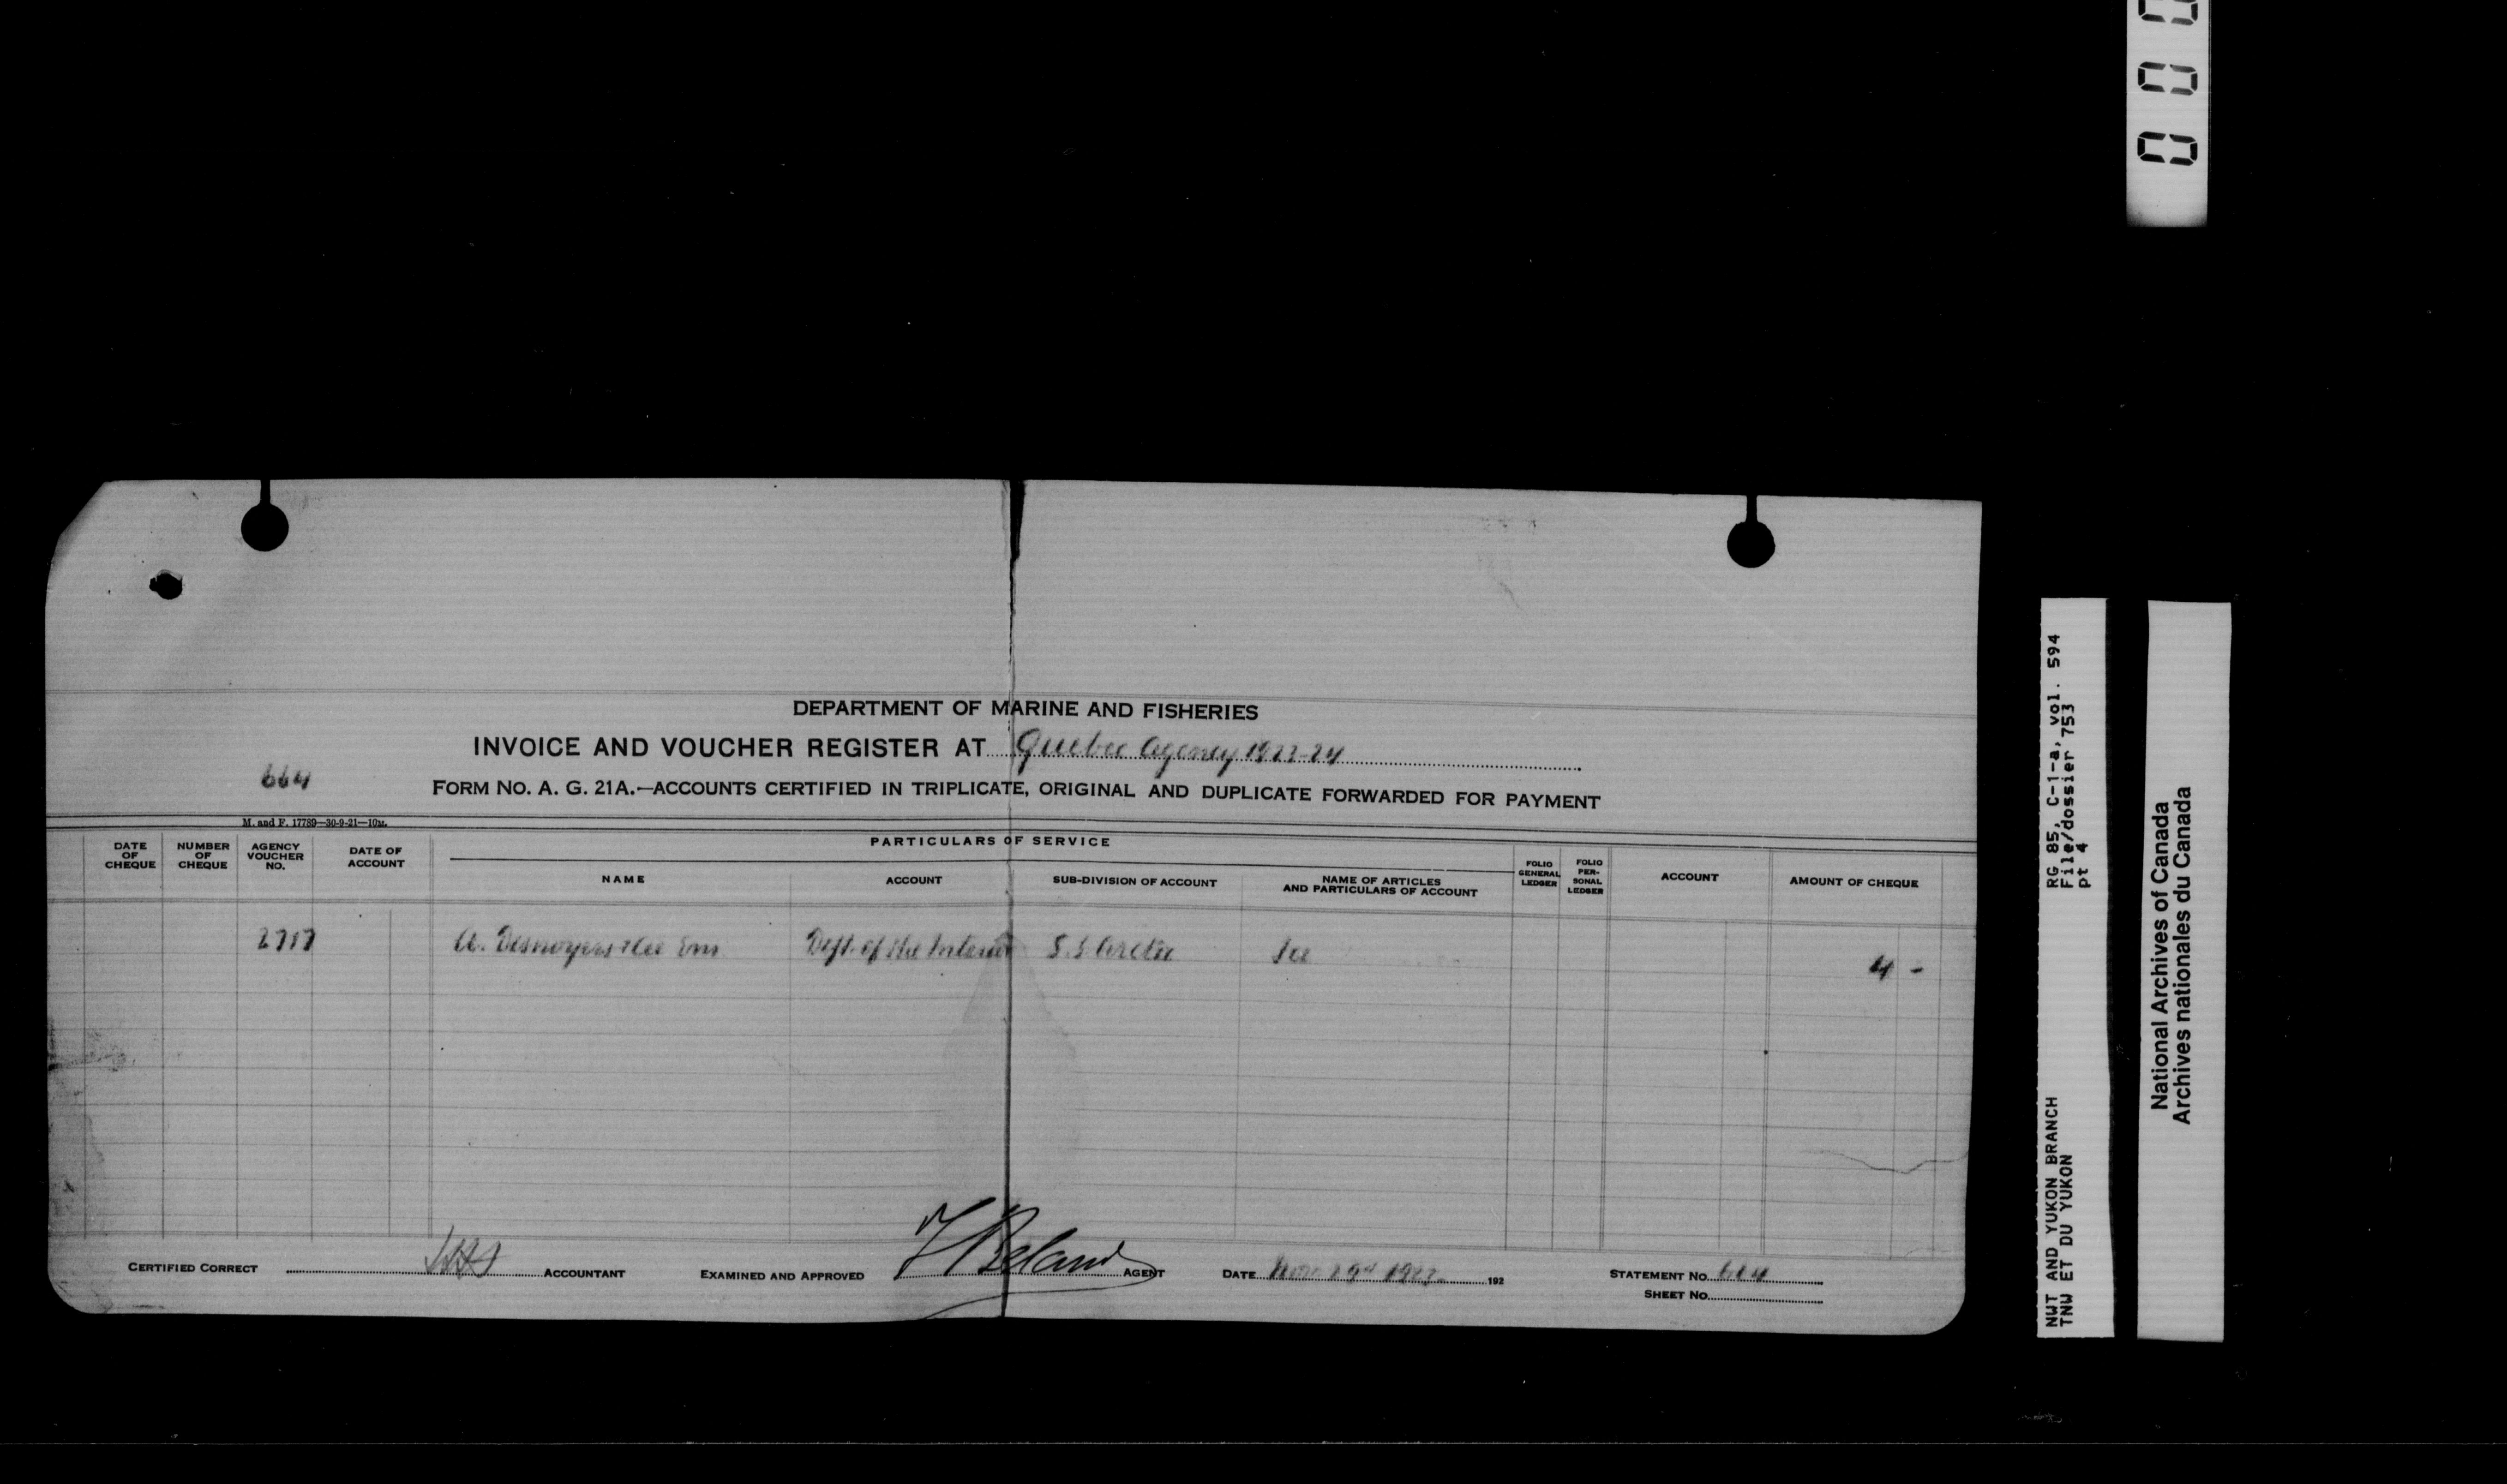 DEPARTMENT OF MARINE AND FISHERIES
INVOICE AND VOUCHER REGISTER AT Quebec Agency 1923-24
664
FORM NO. A. G. 21A.—ACCOUNTS CERTIFIED IN TRIPLICATE, ORIGINAL AND DUPLICATE FORWARDED FOR PAYMENT
M. and F. 17789—30-9-21—10M.
PARTICULARS OF SERVICE
DATE OF CHEQUE NUMBER OF CHEQUE AGENCY VOUCHER NO. DATE OF ACCOUNT NAME ACCOUNT SUB-DIVISION OF ACCOUNT NAME OF ARTICLES AND PARTICULARS OF ACCOUNT FOLIO GENERAL LEDGER FOLIO PER- SONAL LEDGER ACCOUNT AMOUNT OF CHEQUE
2717 A. Desnoyers Dept. of the Interior S.S. Arctic Ice 4 -
CERTIFIED CORRECT ACCOUNTANT EXAMINED AND APPROVED Beland AGENT DATE Nov. 1923 192 STATEMENT NO. 664
SHEET NO.
RG 85, C-1-a, vol. 594
File/dossier 753
pt 4
NWT AND YUKON BRANCH
TNW ET DU YUKON
National Archives of Canada
Archives nationales du Canada
000